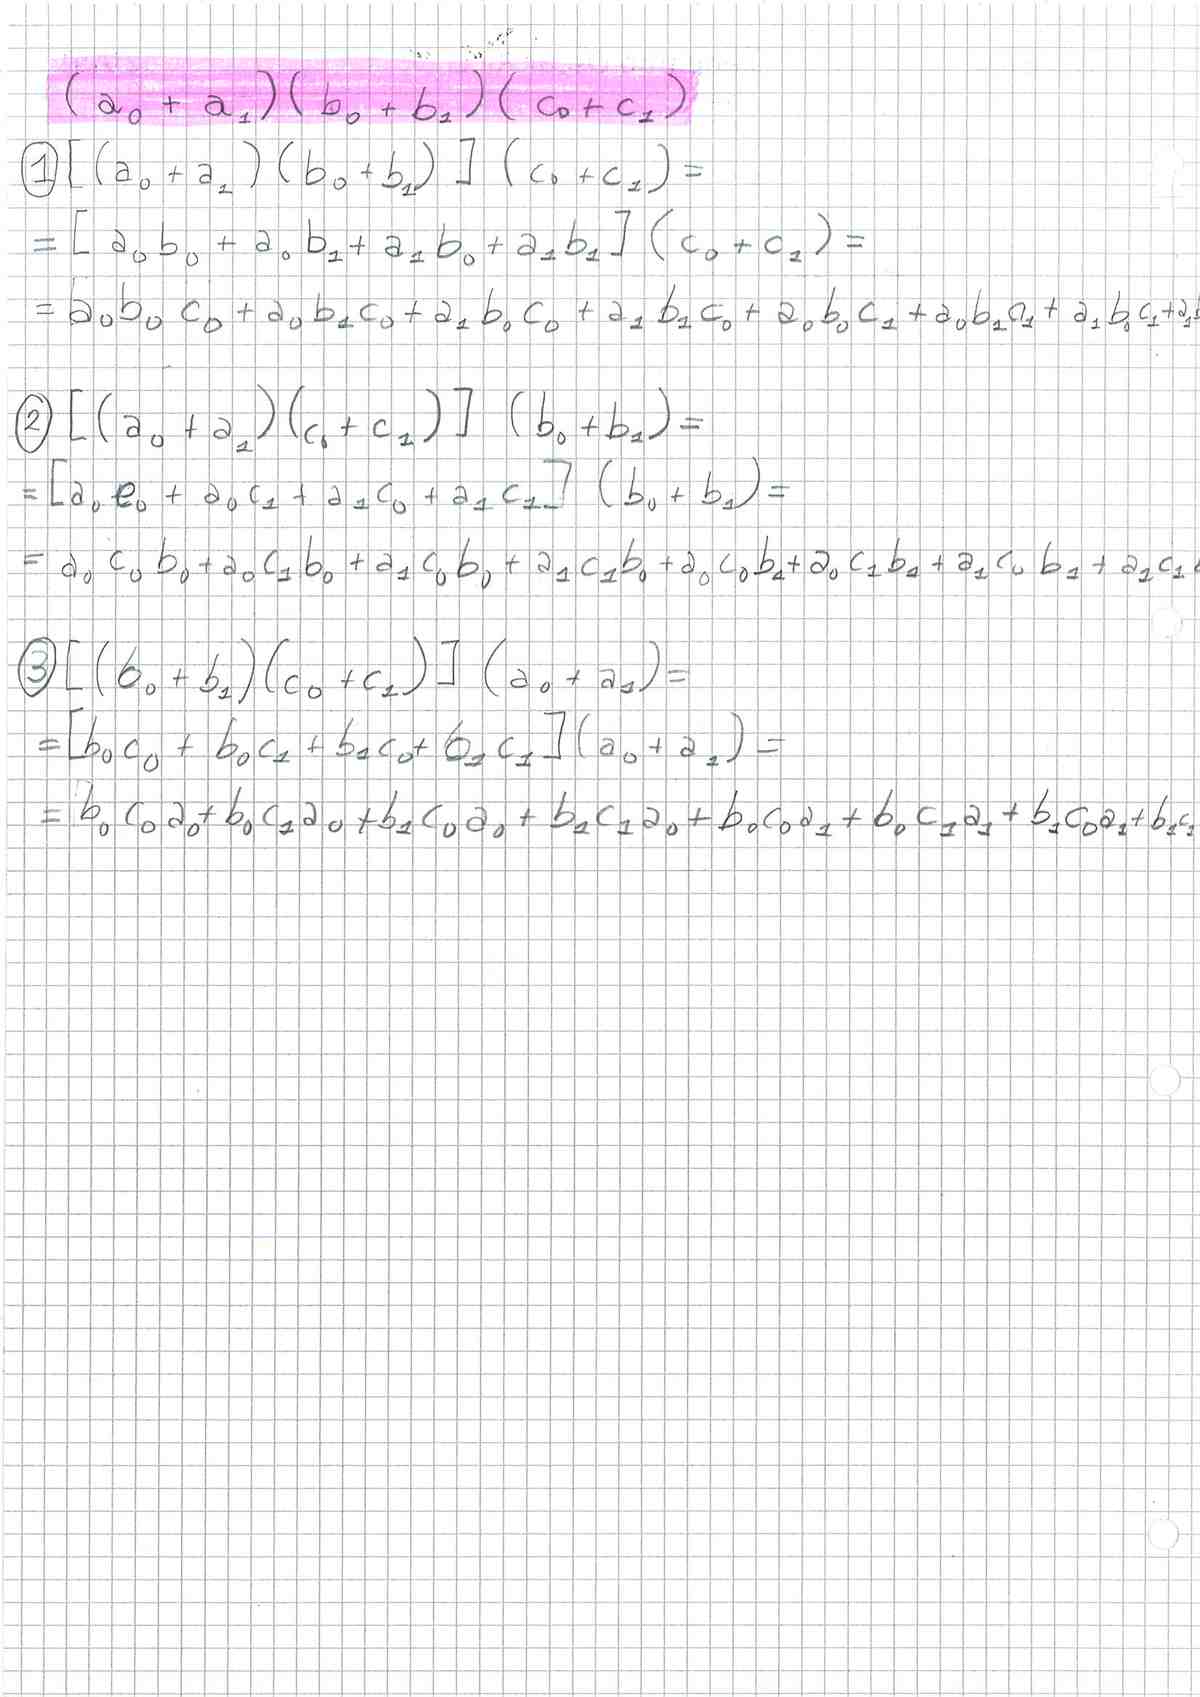 (a₀ + a₁)(b₀ + b₁)(c₀ + c₁)
① [(a₀ + a₁)(b₀ + b₁)](c₀ + c₁) =
= [a₀b₀ + a₀b₁ + a₁b₀ + a₁b₁](c₀ + c₁) =
= a₀b₀c₀ + a₀b₁c₀ + a₁b₀c₀ + a₁b₁c₀ + a₀b₀c₁ + a₀b₁c₁ + a₁b₀c₁ + a₁
② [(a₀ + a₁)(c₀ + c₁)](b₀ + b₁) =
= [a₀c₀ + a₀c₁ + a₁c₀ + a₁c₁](b₀ + b₁) =
= a₀c₀b₀ + a₀c₁b₀ + a₁c₀b₀ + a₁c₁b₀ + a₀c₀b₁ + a₀c₁b₁ + a₁c₀b₁ + a₁c₁
③ [(b₀ + b₁)(c₀ + c₁)](a₀ + a₁) =
= [b₀c₀ + b₀c₁ + b₁c₀ + b₁c₁](a₀ + a₁) =
= b₀c₀a₀ + b₀c₁a₀ + b₁c₀a₀ + b₁c₁a₀ + b₀c₀a₁ + b₀c₁a₁ + b₁c₀a₁ + b₁c₁